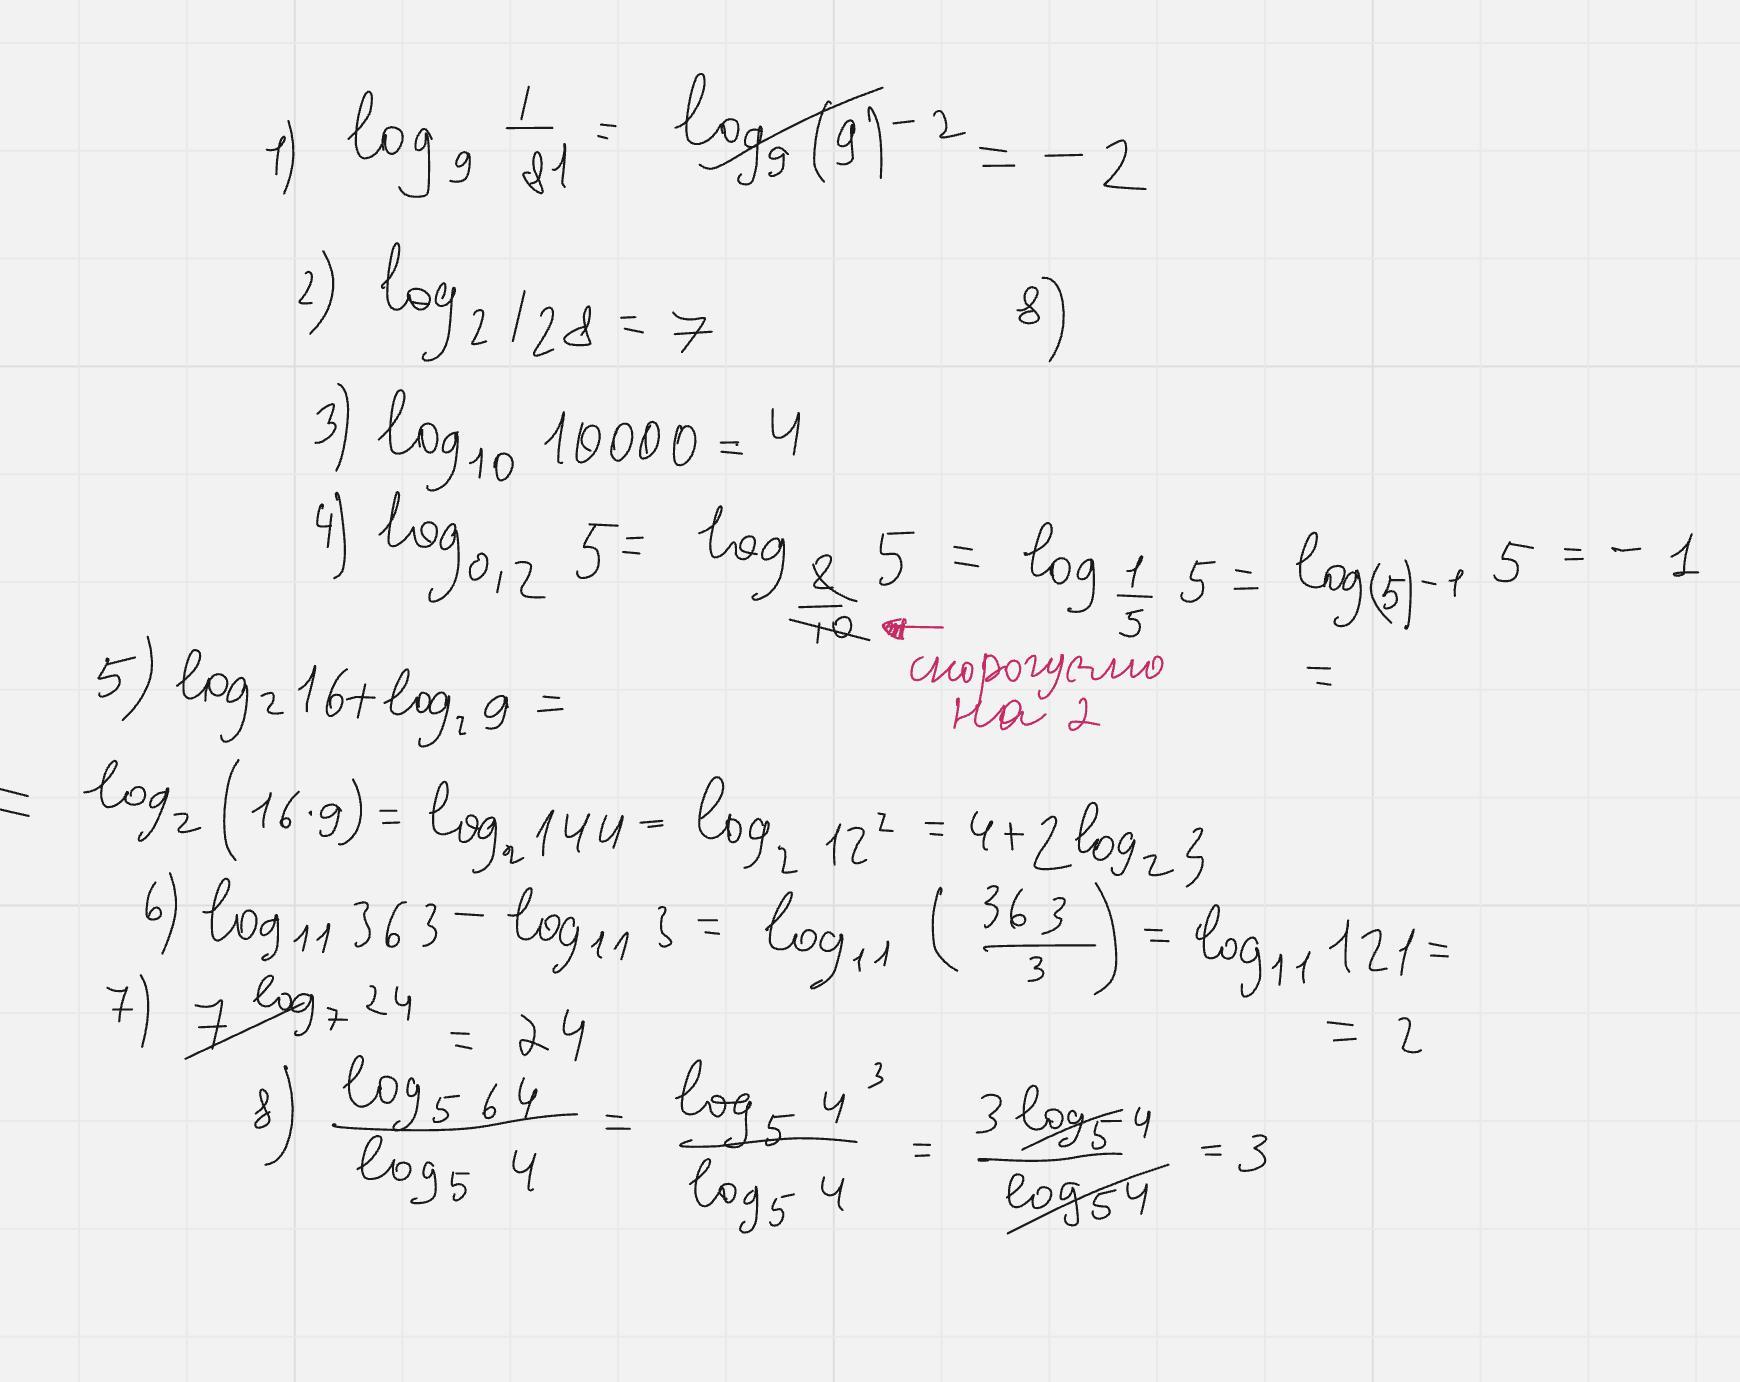 1) log₉ 1/81 = log₉(9)⁻² = -2
2) log₂128 = 7
8)
3) log₁₀ 10000 = 4
4) log₀,₂ 5 = log_{2/10} 5 = log_{1/5} 5 = log_{(5)⁻¹} 5 = -1
на 2
=
5) log₂16 + log₂9 =
= log₂(16·9) = log₂144 = log₂12² = 4+2log₂3
6) log₁₁363 - log₁₁3 = log₁₁(363/3) = log₁₁121 =
= 2
7) 7^{log₇24} = 24
8) log₅64 / log₅4 = log₅4³ / log₅4 = 3log₅4 / log₅4 = 3